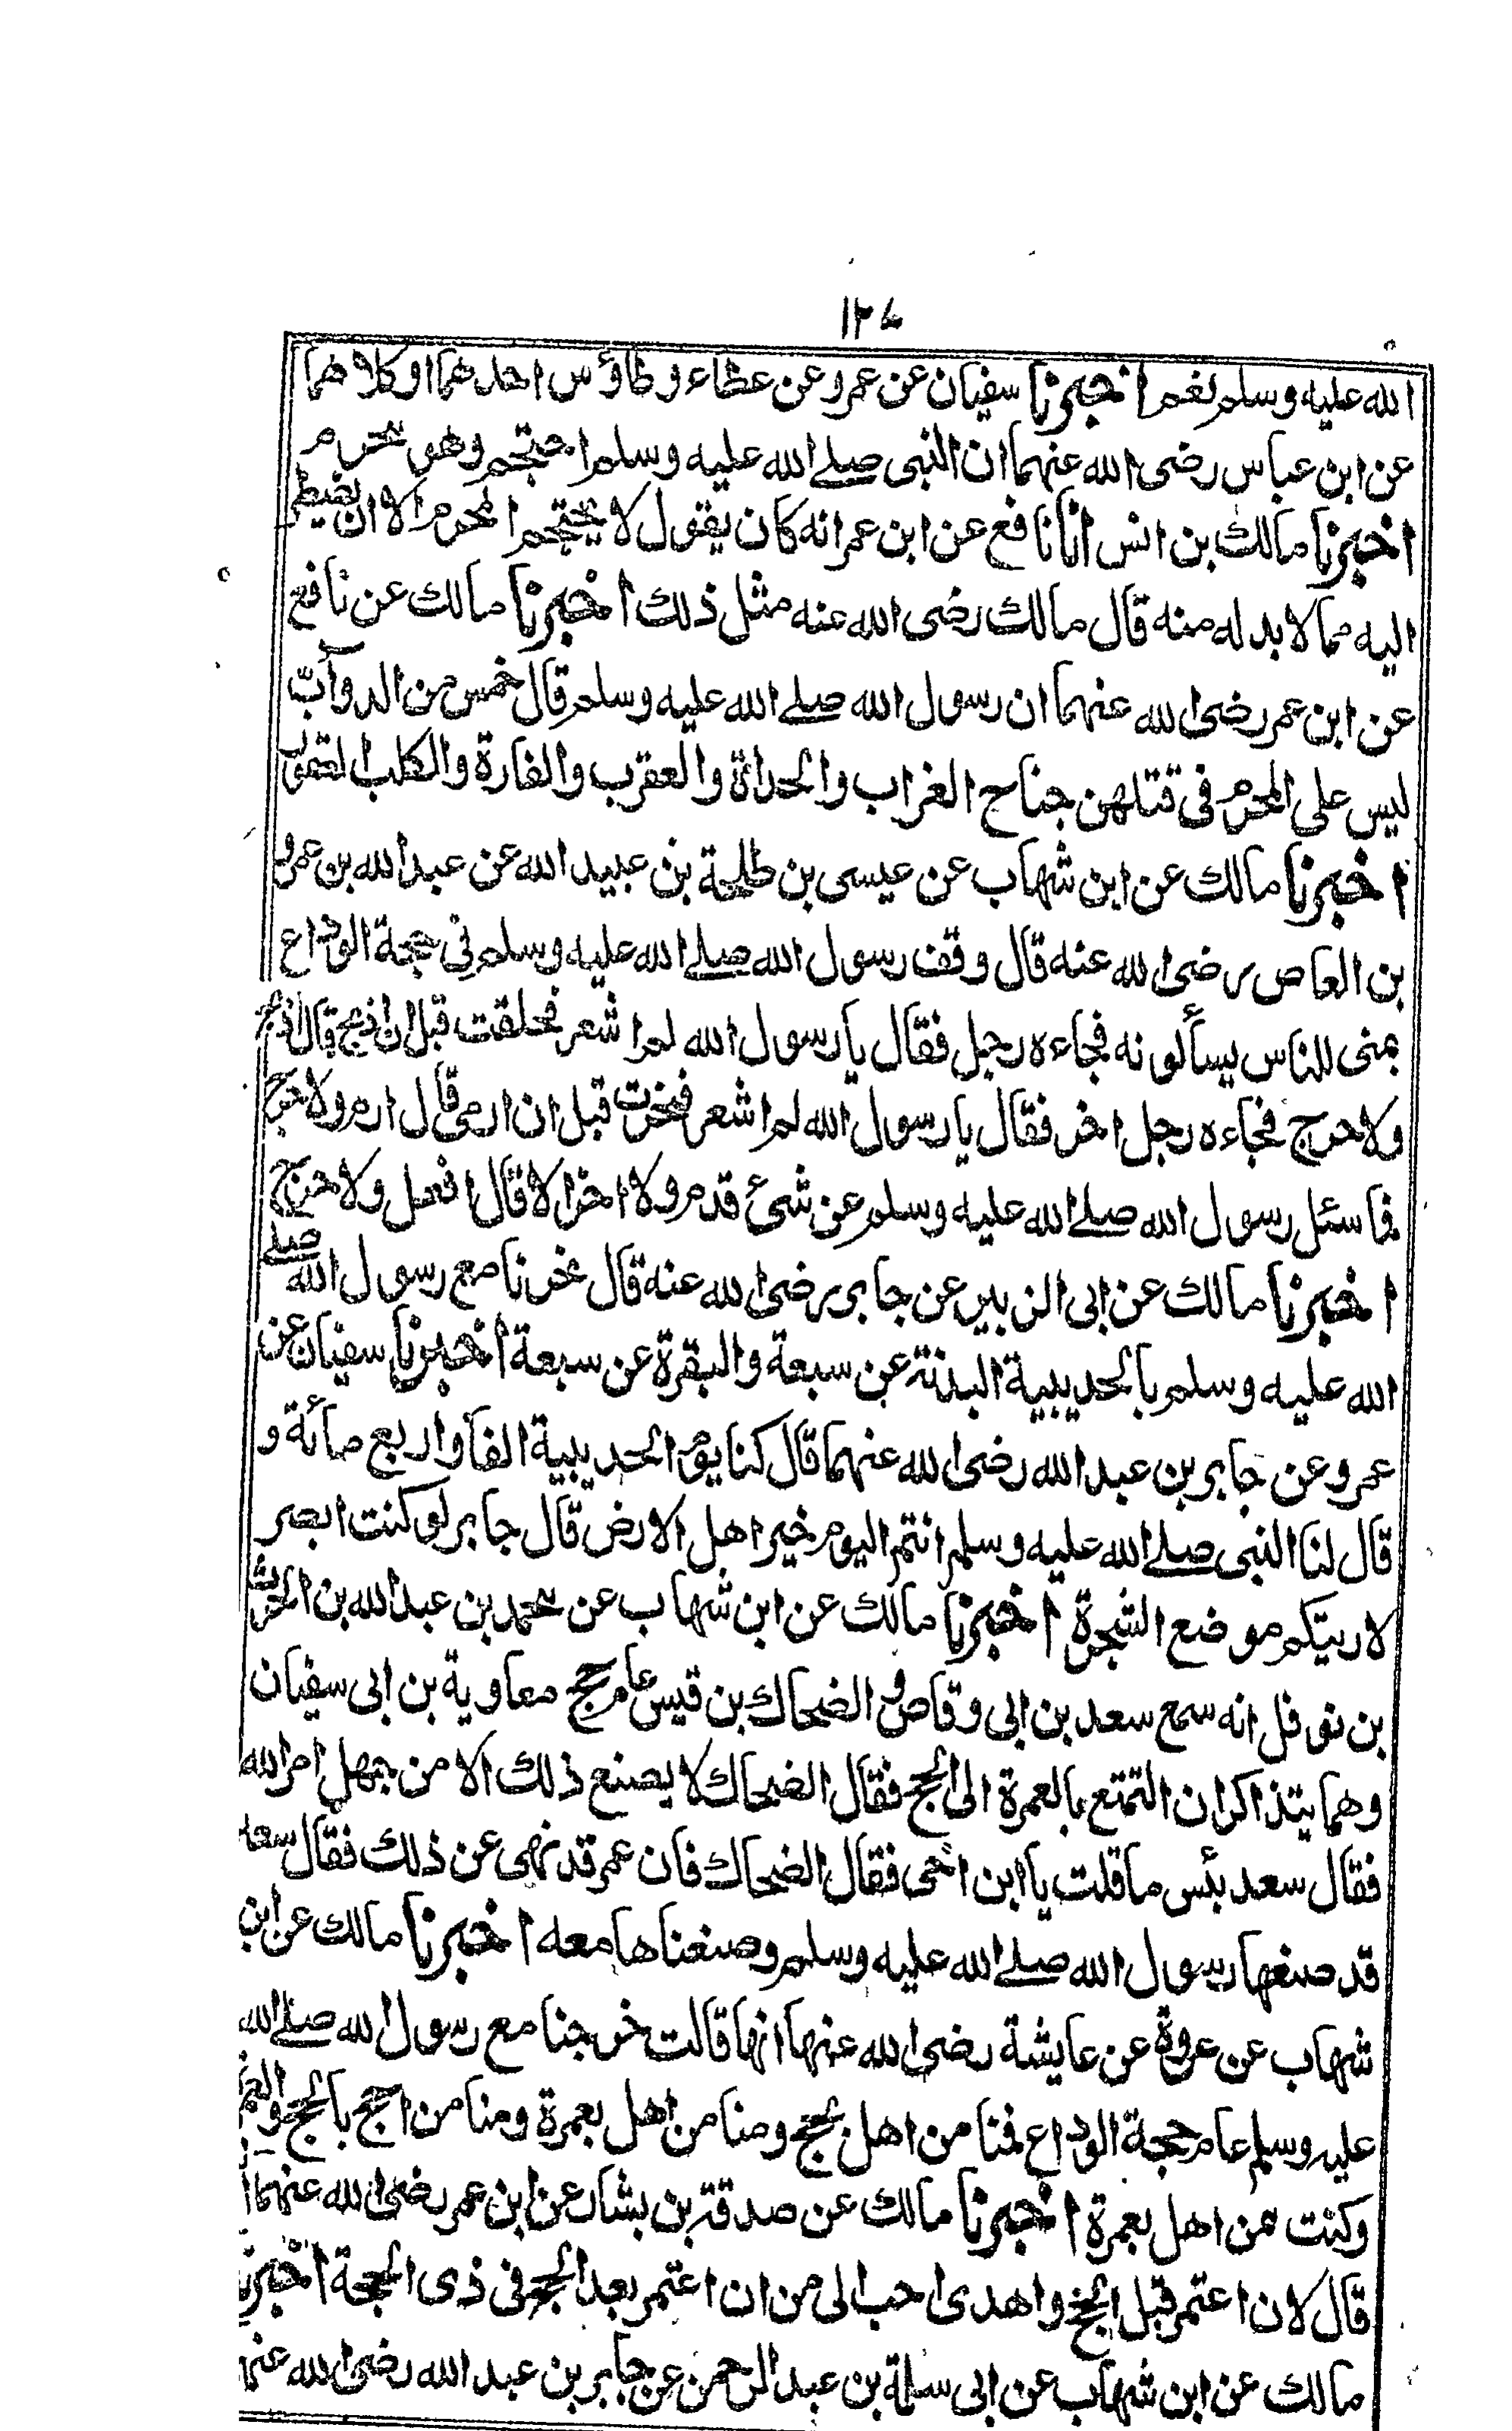 ١٢٧
الله عليه وسلم نعم اخبرنا سفيان عن عمرو عن عطاء و طاؤس احدهما او كلاهما
عن ابن عباس رضى الله عنهما ان النبى صلے الله عليه وسلم احتجم وهو محرم
اخبرنا مالك بن انس انا نافع عن ابن عمر انه كان يقول لا يحتجم المحرم الا ان يضطر
اليه مما لا بد له منه قال مالك رضى الله عنه مثل ذلك اخبرنا مالك عن نافع
عن ابن عمر رضى الله عنهما ان رسول الله صلے الله عليه وسلم قال خمس من الدوآبّ
ليس على المحرم فى قتلهن جناح الغراب والحدأة والعقرب والفارة والكلب العقور
اخبرنا مالك عن ابن شهاب عن عيسى بن طلحة بن عبيد الله عن عبد الله بن عمرو
بن العاص رضى الله عنه قال وقف رسول الله صلے الله عليه وسلم فى حجة الوداع
بمنى للناس يسألونه فجاءه رجل فقال يا رسول الله لم اشعر فحلقت قبل ان اذبح قال اذبح
ولا حرج فجاءه رجل اخر فقال يا رسول الله لم اشعر فنحرت قبل ان ارمى قال ارم ولا حرج
فما سئل رسول الله صلے الله عليه وسلم عن شئ قدم ولا اخر الا قال افعل ولا حرج
اخبرنا مالك عن ابى الزبير عن جابر رضى الله عنه قال نحرنا مع رسول الله صلے
الله عليه وسلم بالحديبية البدنة عن سبعة والبقرة عن سبعة اخبرنا سفيان عن
عمرو عن جابر بن عبد الله رضى الله عنهما قال كنا يوم الحديبية الفا واربع مائة و
قال لنا النبى صلے الله عليه وسلم انتم اليوم خير اهل الارض قال جابر لو كنت ابصر
لاريتكم موضع الشجرة اخبرنا مالك عن ابن شهاب عن محمد بن عبد الله بن الحرث
بن نوفل انه سمع سعد بن ابى وقاص و الضحاك بن قيس عام حج معاوية بن ابى سفيان
وهما يتذاكران التمتع بالعمرة الى الحج فقال الضحاك لا يصنع ذلك الا من جهل امر الله
فقال سعد بئس ما قلت يا ابن اخى فقال الضحاك فان عمر قد نهى عن ذلك فقال سعد
قد صنعها رسول الله صلے الله عليه وسلم وصنعناها معه اخبرنا مالك عن ابن
شهاب عن عروة عن عايشة رضى الله عنها انها قالت خرجنا مع رسول الله صلے الله
عليه وسلم عام حجة الوداع فمنا من اهل بحج ومنا من اهل بعمرة ومنا من اجمع بالحج والعمرة
وكنت ممن اهل بعمرة اخبرنا مالك عن صدقة بن بشار عن ابن عمر رضى الله عنهما
قال لان اعتمر قبل الحج واهدى احب الى من ان اعتمر بعد الحج فى ذى الحجة اخبرنا
مالك عن ابن شهاب عن ابى سلمة بن عبد الرحمن عن جابر بن عبد الله رضى الله عنهما